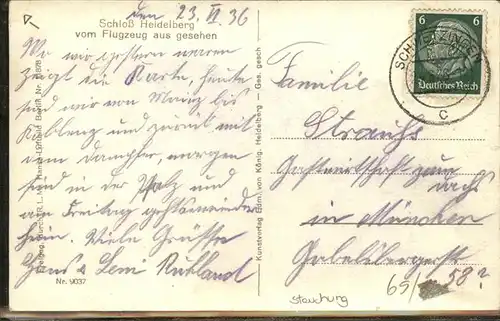 den 23. VI. 36
Schloß Heidelberg
vom Flugzeug aus gesehen
Wo wir gestern waren
zeigt die Karte, heute
sind wir von Mainz bis
Koblenz und zurück mit
dem Dampfer, morgen
sind in der Pfalz und
am Freitag gehts wieder
heim. Viele Grüsse
Hans & Ruhland
Nr. 9037
Kunstverlag Edm. von König, Heidelberg — Ges. gesch
Familie
Strauss
Gastwirtschaft zur
in München
Gabelsbergerstr
65/ 58?
6 6
Deutsches Reich
SCHWETZINGEN
C